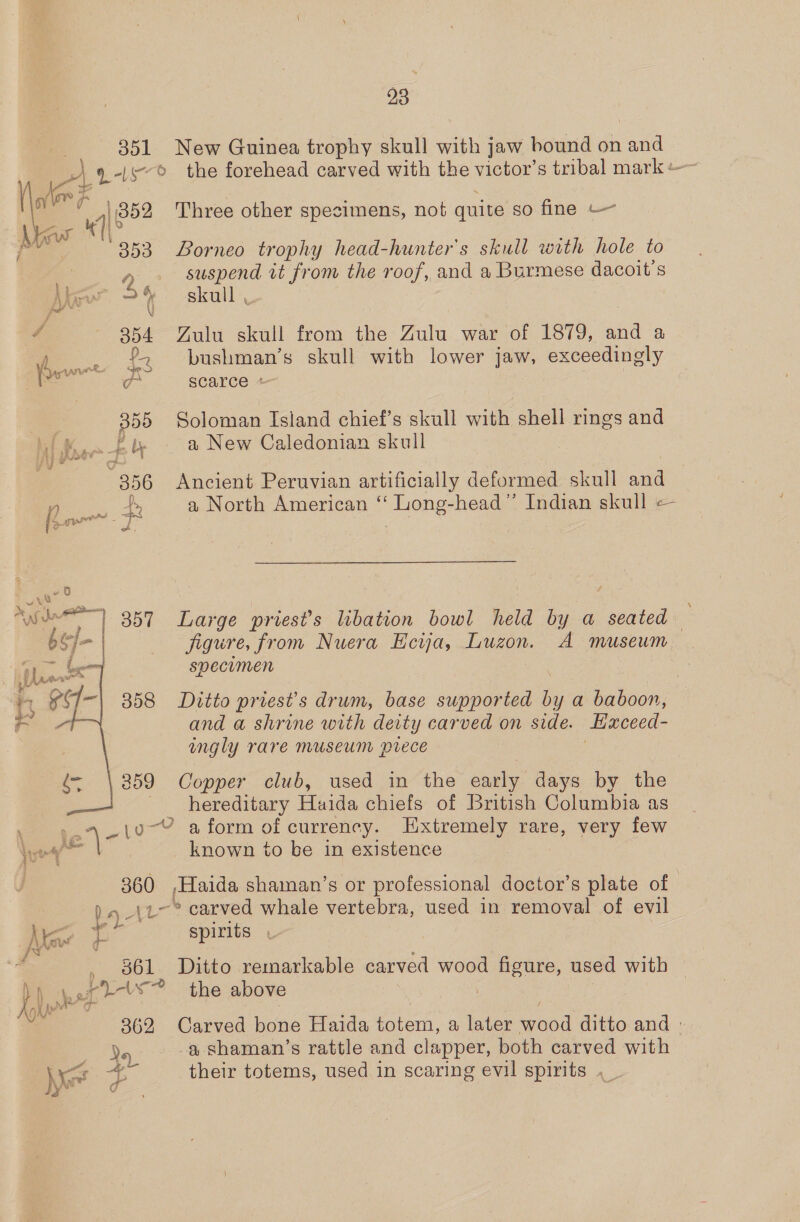 23
351 New Guinea trophy skull with jaw bound on and
the forehead carved with the victor's tribal mark
352 Three other specimens, not quite so fine
353 Borneo trophy head-hunter's skull with hole to
suspend it from the roof, and a Burmese dacoit's
skull
354 Zulu skull from the Zulu war of 1879, and a
bushman's skull with lower jaw, exceedingly
scarce
355 Soloman Island chief's skull with shell rings and
a New Caledonian skull
356 Ancient Peruvian artificially deformed skull and
a North American “Long-head” Indian skull
357 Large priest's libation bowl held by a seated
figure, from Nuera Ecija, Luzon. A museum
specimen
358 Ditto priest's drum, base supported by a baboon,
and a shrine with deity carved on side. Exceed-
ingly rare museum piece
359 Copper club, used in the early days by the
hereditary Haida chiefs of British Columbia as
a form of currency. Extremely rare, very few
known to be in existence
360 Haida shaman's or professional doctor's plate of
carved whale vertebra, used in removal of evil
spirits
361 Ditto remarkable carved wood figure, used with
the above
362 Carved bone Haida totem, a later wood ditto and
a shaman's rattle and clapper, both carved with
their totems, used in scaring evil spirits